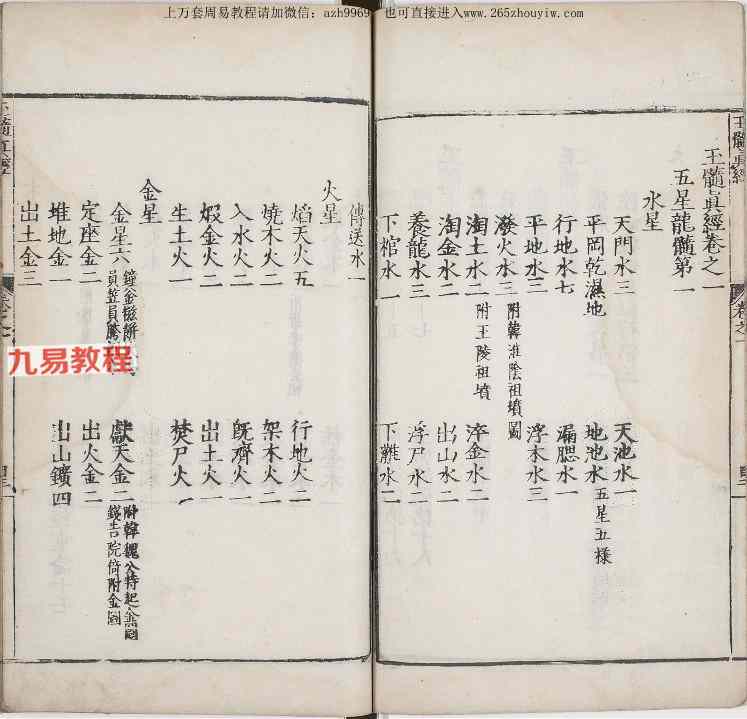 上万套周易教程请加微信：azh9969 也可直接进入www.265zhouyiw.com
玉髓真經
玉髓真經卷之一
五星龍髓第一
水星
天門水三 天池水一
平岡乾濕地 地池水五星五樣
行地水七 漏腮水一
平地水三 浮木水三
潑火水三 附韓淮陰祖墳圖
淘土水二 附王陵祖墳 淬金水二
淘金水二 出山水二
養龍水三 浮尸水二
下棺水一 下難水二
傳送水一
火星
焰天火五 行地火二
燒木火二 架木火二
入水火二 旣濟火一
煅金火二 出土火一
生土火一 焚尸火一
金星
金星六 鐘金 員笠員 獻天金二 附韓魏公特起金圖 錢吉院倚附金圖
定座金二 出火金二
堆地金一 出山鑛四
出土金三
九易教程